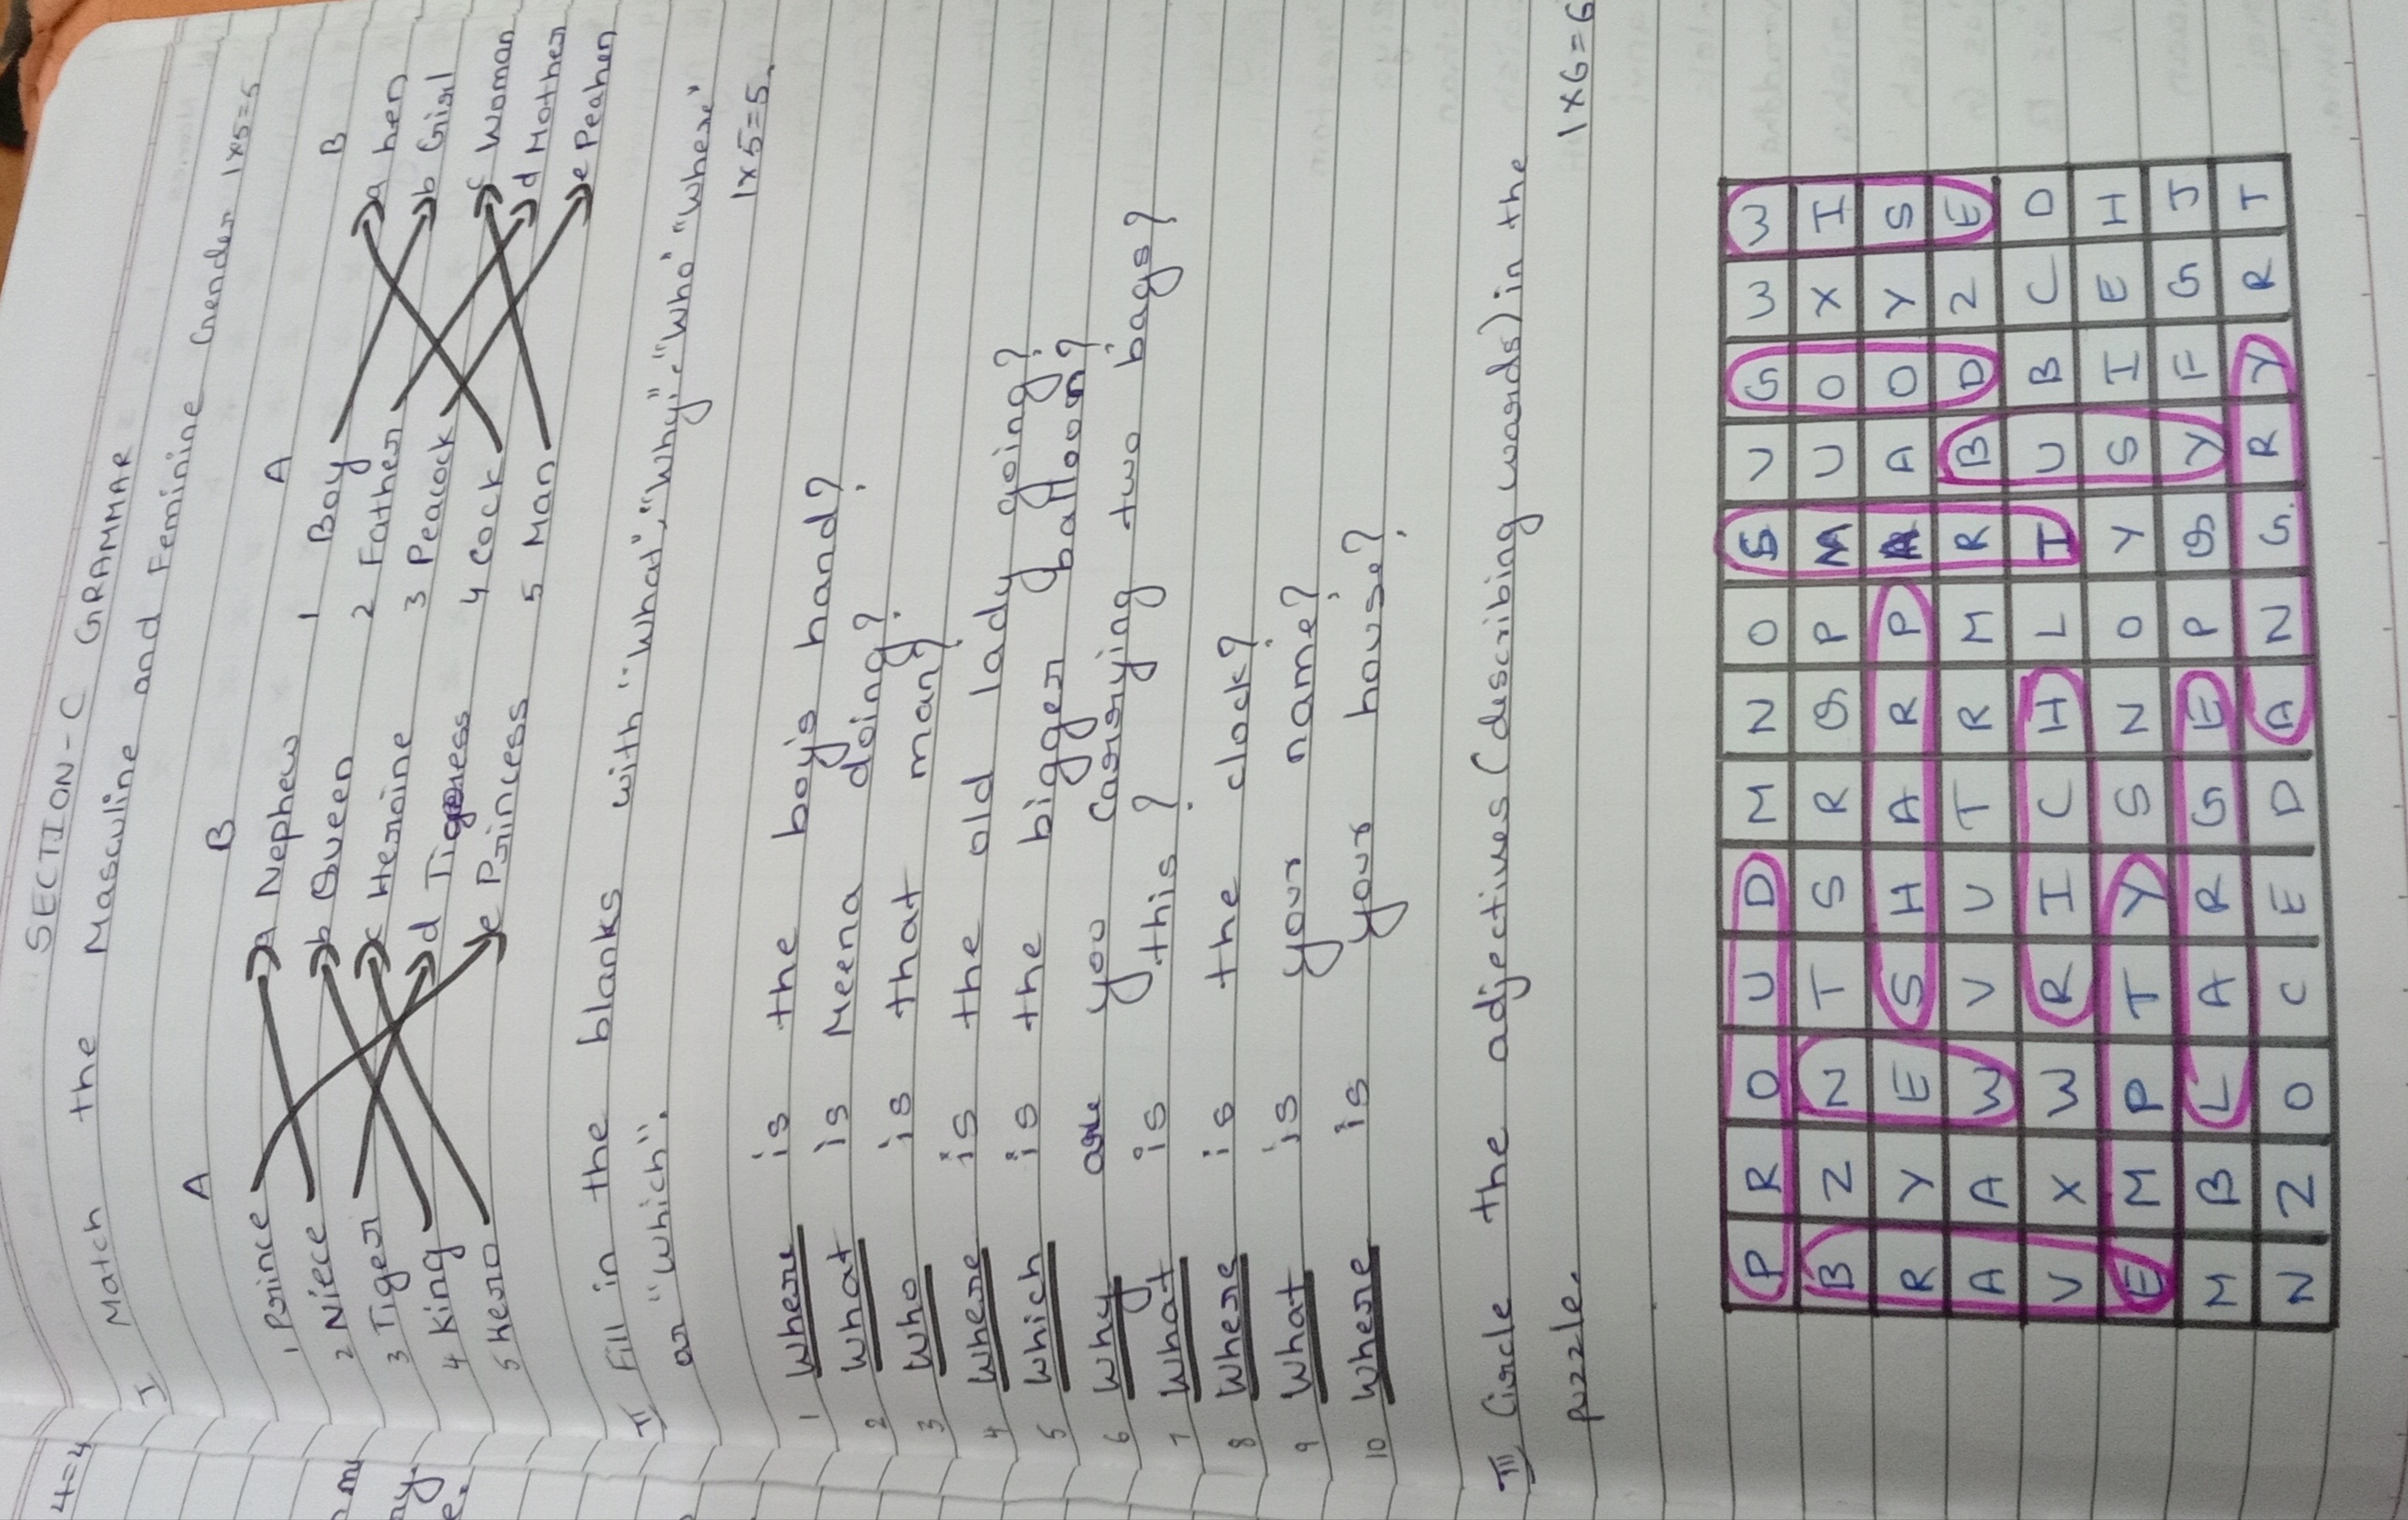 4=4
SECTION-C GRAMMAR
I Match the Masculine and Feminine Gender 1x5=5
A B A B
1 Prince a Nephew 1 Boy a hen
2 Niece b Queen 2 Father b Girl
3 Tiger c Heroine 3 Peacock c Woman
4 King d Tigress 4 Cock d Mother
5 hero e Princess 5 Man e Peahen
II Fill in the blanks with "What", "Why", "Who" "Where"
or "Which". 1x5=5.
1 Where is the boy's hand?
2 What is Meena doing?
3 Who is that man?
4 Where is the old lady going?
5 Which is the bigger balloon?
6 Why are you carrying two bags?
7 What is this?
8 Where is the clock?
9 What is your name?
10 Where is your house?
III Circle the adjectives (describing words) in the
puzzle. 1x6=6
P R O U D M N O S V G W W
B Z N T S R Q P M U O X I
R Y E S H A R P A A O Y S
A A W V U T R M R B D Z E
V X W R I C H L T U B C D
E M P T Y S N O Y S I E H
M B L A R G E P Q Y F G J
N Z O C E D A N G R Y R T